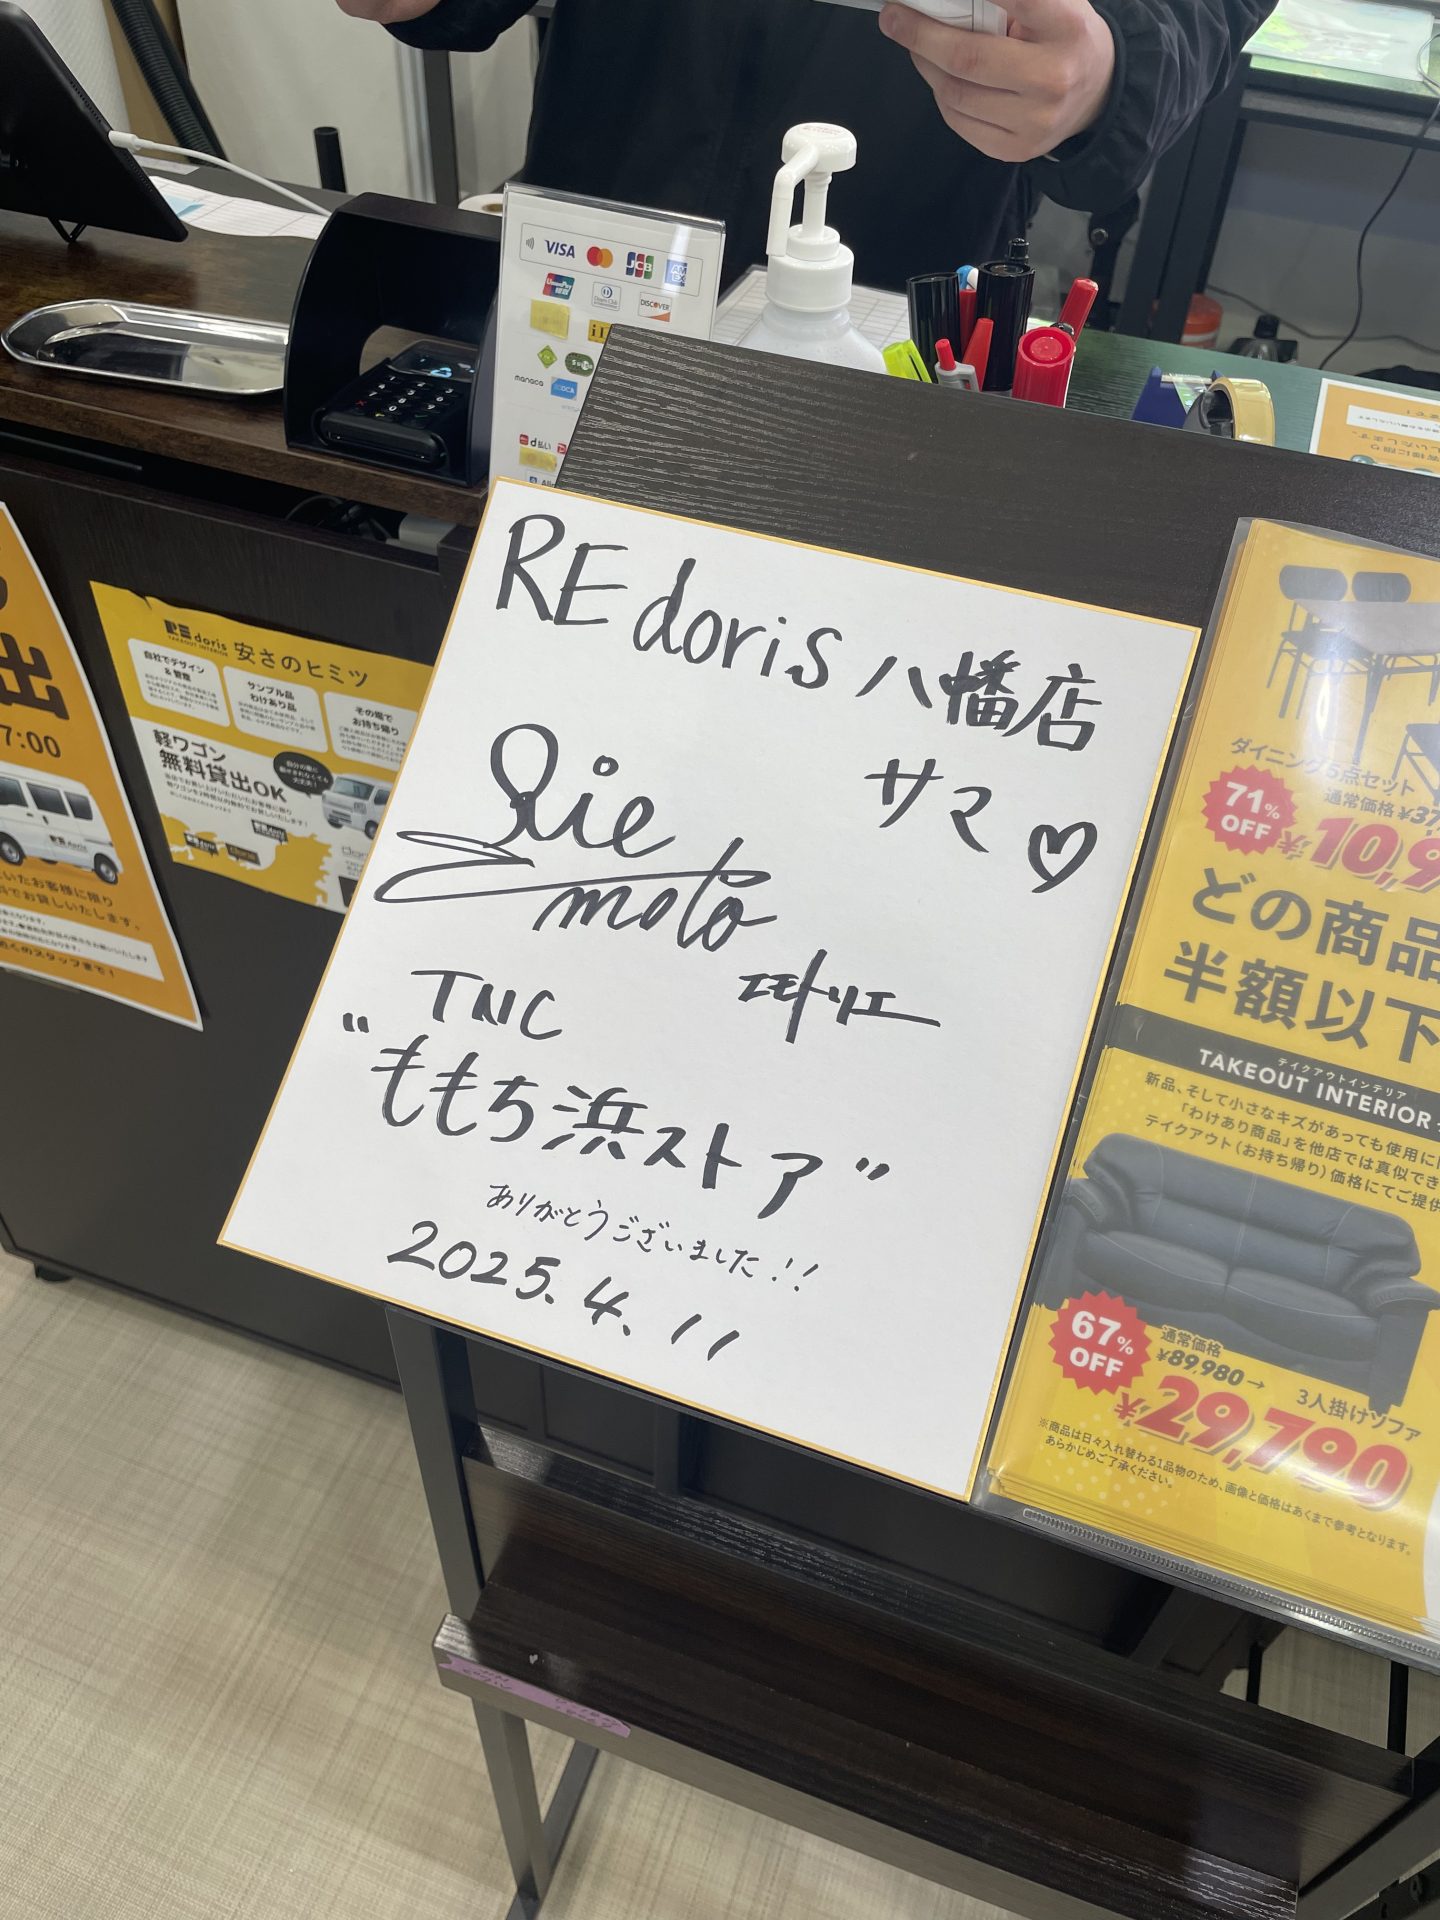 VISA
JCB
AMEX
UnionPay
Diners Club
DISCOVER
iD
manaca
d払い
RE doris 八幡店
サマ♡
Rie
moto
エモトリエ
TNC
"ももち浜ストア"
ありがとうございました!!
2025.4.11
出
7:00
RE doris
TAKEOUT INTERIOR
安さのヒミツ
自社でデザイン
&管理
サンプル品
わけあり品
その場で
お持ち帰り
軽ワゴン
無料貸出OK
いたお客様に限り
でお貸しいたします。
ダイニング5点セット
71%
OFF
通常価格¥37,
¥10,9
どの商品
半額以下
テイクアウトインテリア
TAKEOUT INTERIOR
新品、そして小さなキズがあっても使用に
「わけあり商品」を他店では真似でき
テイクアウト(お持ち帰り)価格にてご提供
67%
OFF
通常価格
¥89,980→
3人掛けソファ
¥29,790
※商品は日々入れ替わる1品物のため、画像と価格はあくまで参考となります。
あらかじめご了承ください。